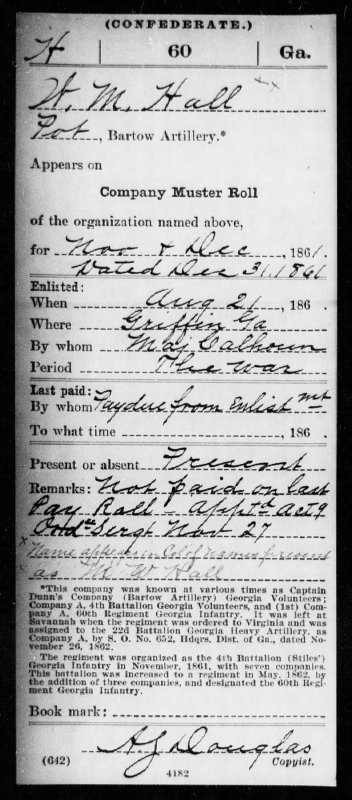 (CONFEDERATE.)
H 60 Ga.
W. M. Hall
Pvt, Bartow Artillery.*
Appears on
Company Muster Roll
of the organization named above,
for Nov & Dec, 1861.
Dated Dec 31, 1861
Enlisted:
When Aug 21, 186 .
Where Griffin Ga
By whom Maj Calhoun
Period The war
Last paid:
By whom Paydue from Enlist mt
To what time , 186 .
Present or absent Present
Remarks: Not paid on last
Pay Roll - Appt'd act'g
Ord'ce Sergt Nov 27
Name appears in Col of names present
as M. W Hall
*This company was known at various times as Captain
Dunn's Company (Bartow Artillery) Georgia Volunteers;
Company A, 4th Battalion Georgia Volunteers, and (1st) Com-
pany A, 60th Regiment Georgia Infantry. It was left at
Savannah when the regiment was ordered to Virginia and was
assigned to the 22d Battalion Georgia Heavy Artillery, as
Company A, by S. O. No. 652, Hdqrs. Dist. of Ga., dated No-
vember 26, 1862.
The regiment was organized as the 4th Battalion (Stiles')
Georgia Infantry in November, 1861, with seven companies.
This battalion was increased to a regiment in May, 1862, by
the addition of three companies, and designated the 60th Regi-
ment Georgia Infantry.
Book mark:
A J Douglas
(642) Copyist.
4182